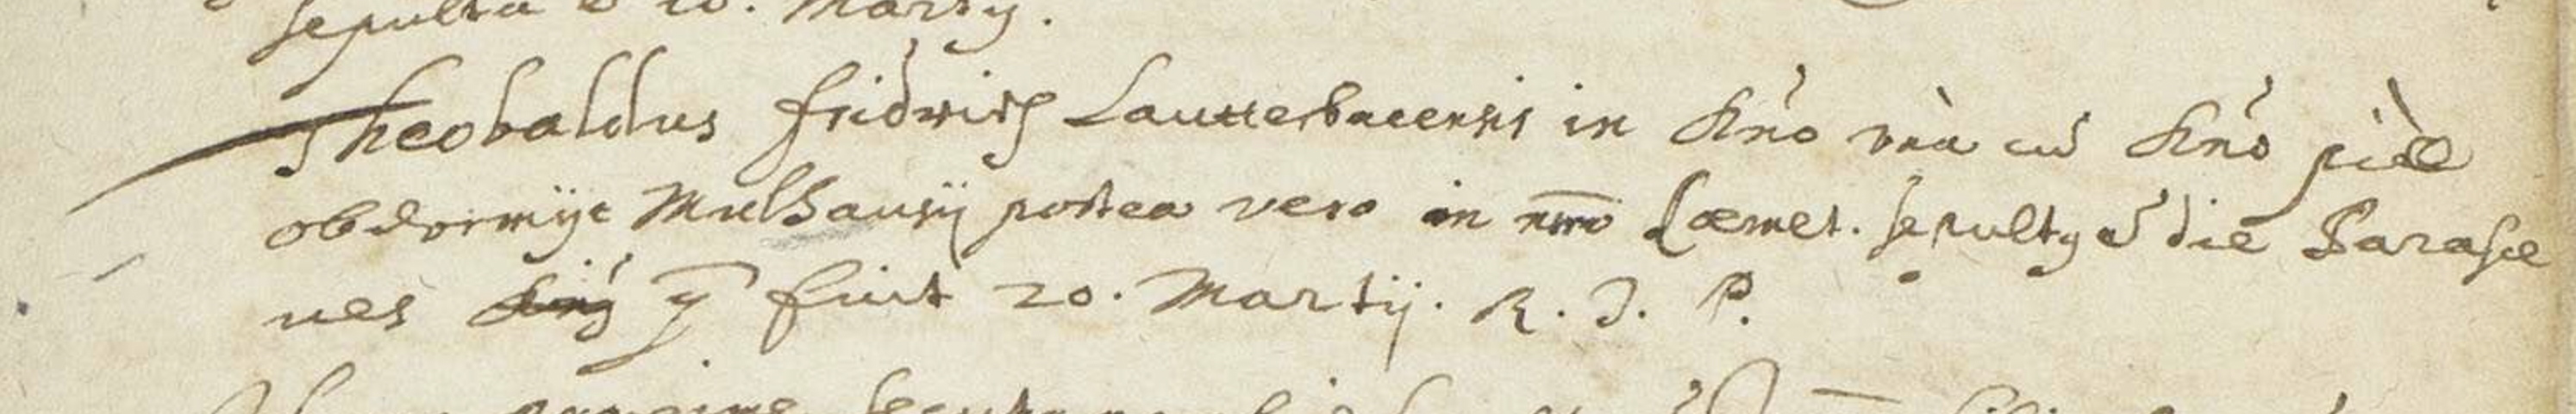 sepulta ē 10. Martij.
Theobaldus fridrich Lautterbacensis in dn̄o vnà cū dn̄o piè
obdormijt Mulhausij postea vero in nr̄o Cœmet. sepultꝰ ē die Parasce
ues q̄ fuit 20. Martij. R. I. P.